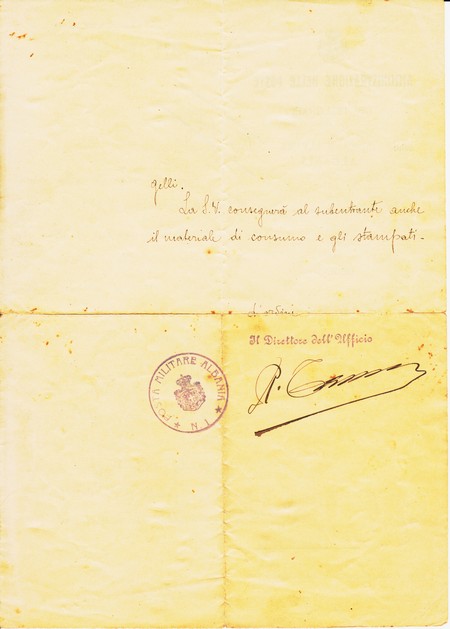 gelli.
La S.V. consegnerà al subentrante anche
il materiale di consumo e gli stampati.
d'ordine
Il Direttore dell'Ufficio
POSTA MILITARE ALBANIA
N. 1